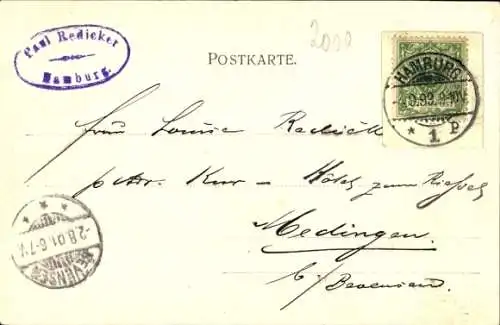 Paul Redicker
Hamburg.
2000
POSTKARTE.
HAMBURG
* 1 P
Frau Louise Redick
p Adr. Kur-Hotel zum Kiesel
Medingen.
b/ Bevensen
-2.8.01.6-7V.
BEVENSEN